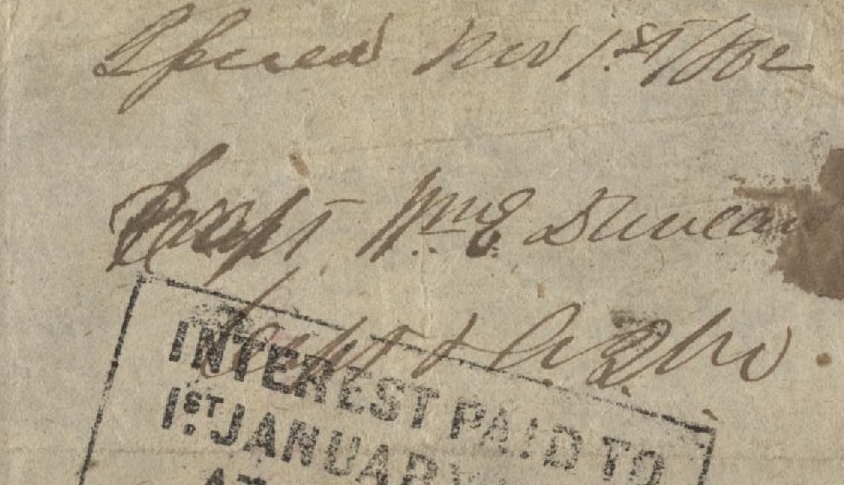 Issued Nov 1st/62
Capt. Wm E Duncan
Capt & A.Q.M.
INTEREST PAID TO
1ST JANUARY
AT